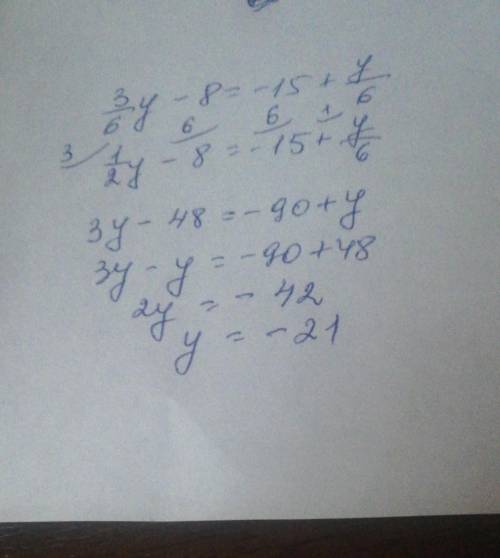 3/6 y - 8 = -15 + y/6
3/ 1/2 y - 6/ 8 = 6/ -15 + 1/ y/6
3y - 48 = -90 + y
3y - y = -90 + 48
2y = - 42
y = - 21